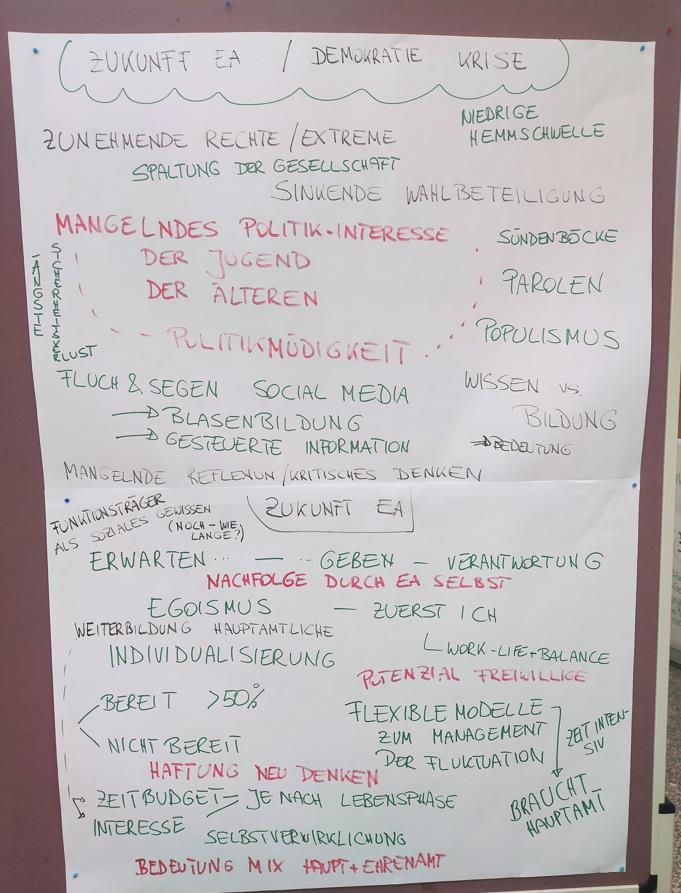 ZUKUNFT EA / DEMOKRATIE KRISE
NIEDRIGE
HEMMSCHWELLE
ZUNEHMENDE RECHTE/EXTREME
SPALTUNG DER GESELLSCHAFT
SINKENDE WAHLBETEILIGUNG
MANGELNDES POLITIK-INTERESSE
DER JUGEND
DER ÄLTEREN
POLITIKMÜDIGKEIT
SÜNDENBÖCKE
PAROLEN
POPULISMUS
ÄNGSTE
SICHERHEITSVERLUST
FLUCH & SEGEN SOCIAL MEDIA
→ BLASENBILDUNG
→ GESTEUERTE INFORMATION
WISSEN VS.
BILDUNG
→ BEDEUTUNG
MANGELNDE REFLEXUN/KRITISCHES DENKEN
ZUKUNFT EA
FUNKTIONSTRÄGER
ALS SOZIALES GEWISSEN
(NOCH-WIE
LANGE?)
ERWARTEN ... — ... GEBEN – VERANTWORTUNG
NACHFOLGE DURCH EA SELBST
EGOISMUS — ZUERST ICH
WEITERBILDUNG HAUPTAMTLICHE
WORK-LIFE+BALANCE
INDIVIDUALISIERUNG
POTENZIAL FREIWILLIGE
BEREIT >50%
NICHT BEREIT
FLEXIBLE MODELLE
ZUM MANAGEMENT
DER FLUKTUATION
ZEIT INTEN-
SIV
BRAUCHT
HAUPTAMT
HAFTUNG NEU DENKEN
ZEITBUDGET – JE NACH LEBENSPHASE
INTERESSE
SELBSTVERWIRKLICHUNG
BEDEUTUNG MIX HAUPT+EHRENAMT